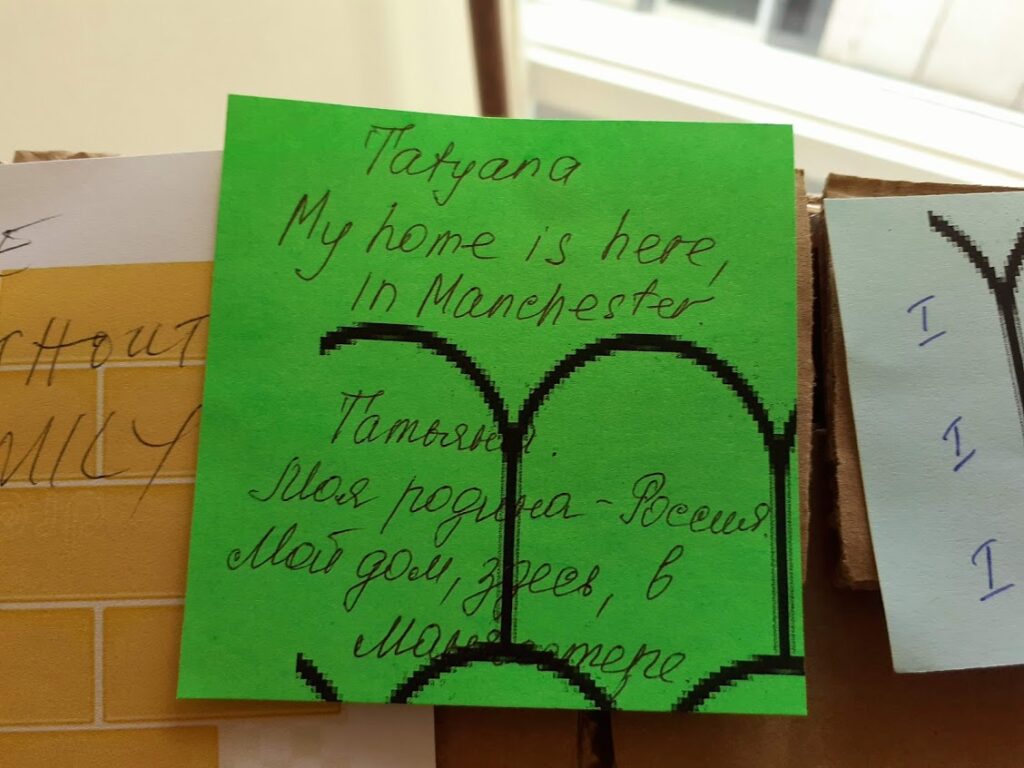 Tatyana
My home is here,
in Manchester.
Татьяна.
Моя родина - Россия.
Мой дом, здесь, в
Манчестере
MILY
I
I
I